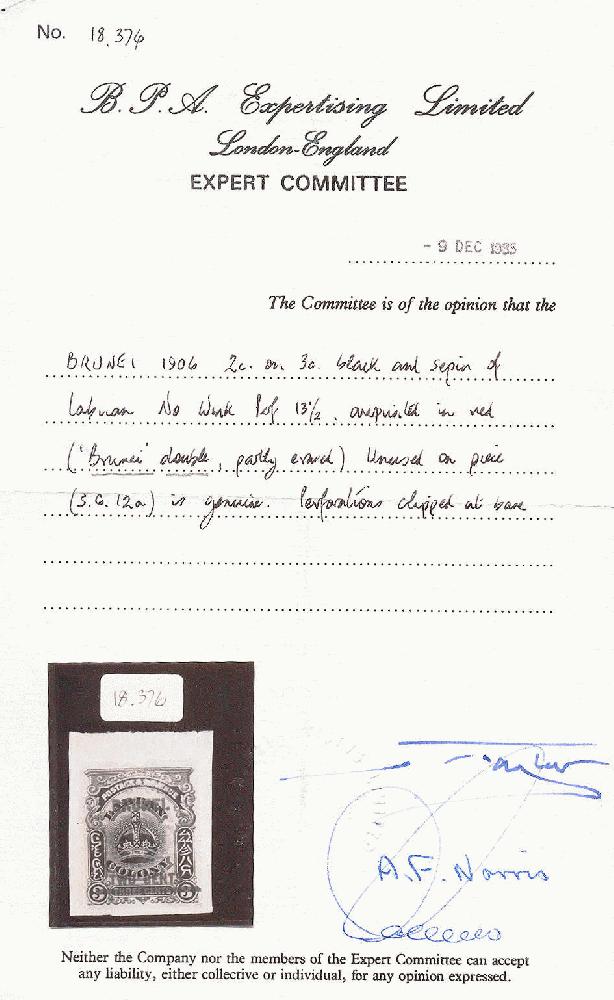 No. 18,376
B.P.A. Expertising Limited
London-England
EXPERT COMMITTEE
- 9 DEC
The Committee is of the opinion that the
BRUNEI 1906 2c. on 3c. black and sepia of
Labuan No Wmk Perf 13½, overprinted in red
('Brunei' double, partly erased) Unused on piece
(S.G. 12a) is genuine. Perforations clipped at base
18.376
POSTAGE & REVENUE
LABUAN
COLONY
TWO CENTS
THREE CENTS
A.F. Norris
Neither the Company nor the members of the Expert Committee can accept
any liability, either collective or individual, for any opinion expressed.